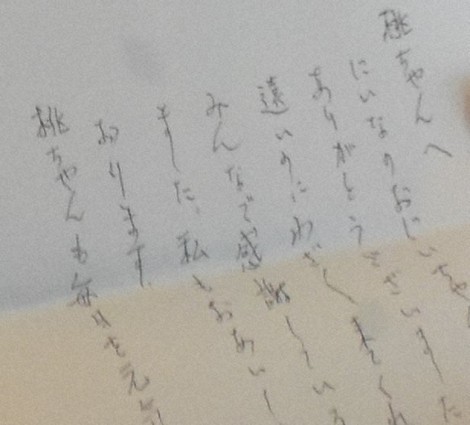 桃ちゃんへ
にいなのおじいちゃ
ありがとうございました
遠いのにわざ〱来てくれ
みんなで感謝している
ました、私もおあいし
おります。
桃ちゃんも毎日を元気